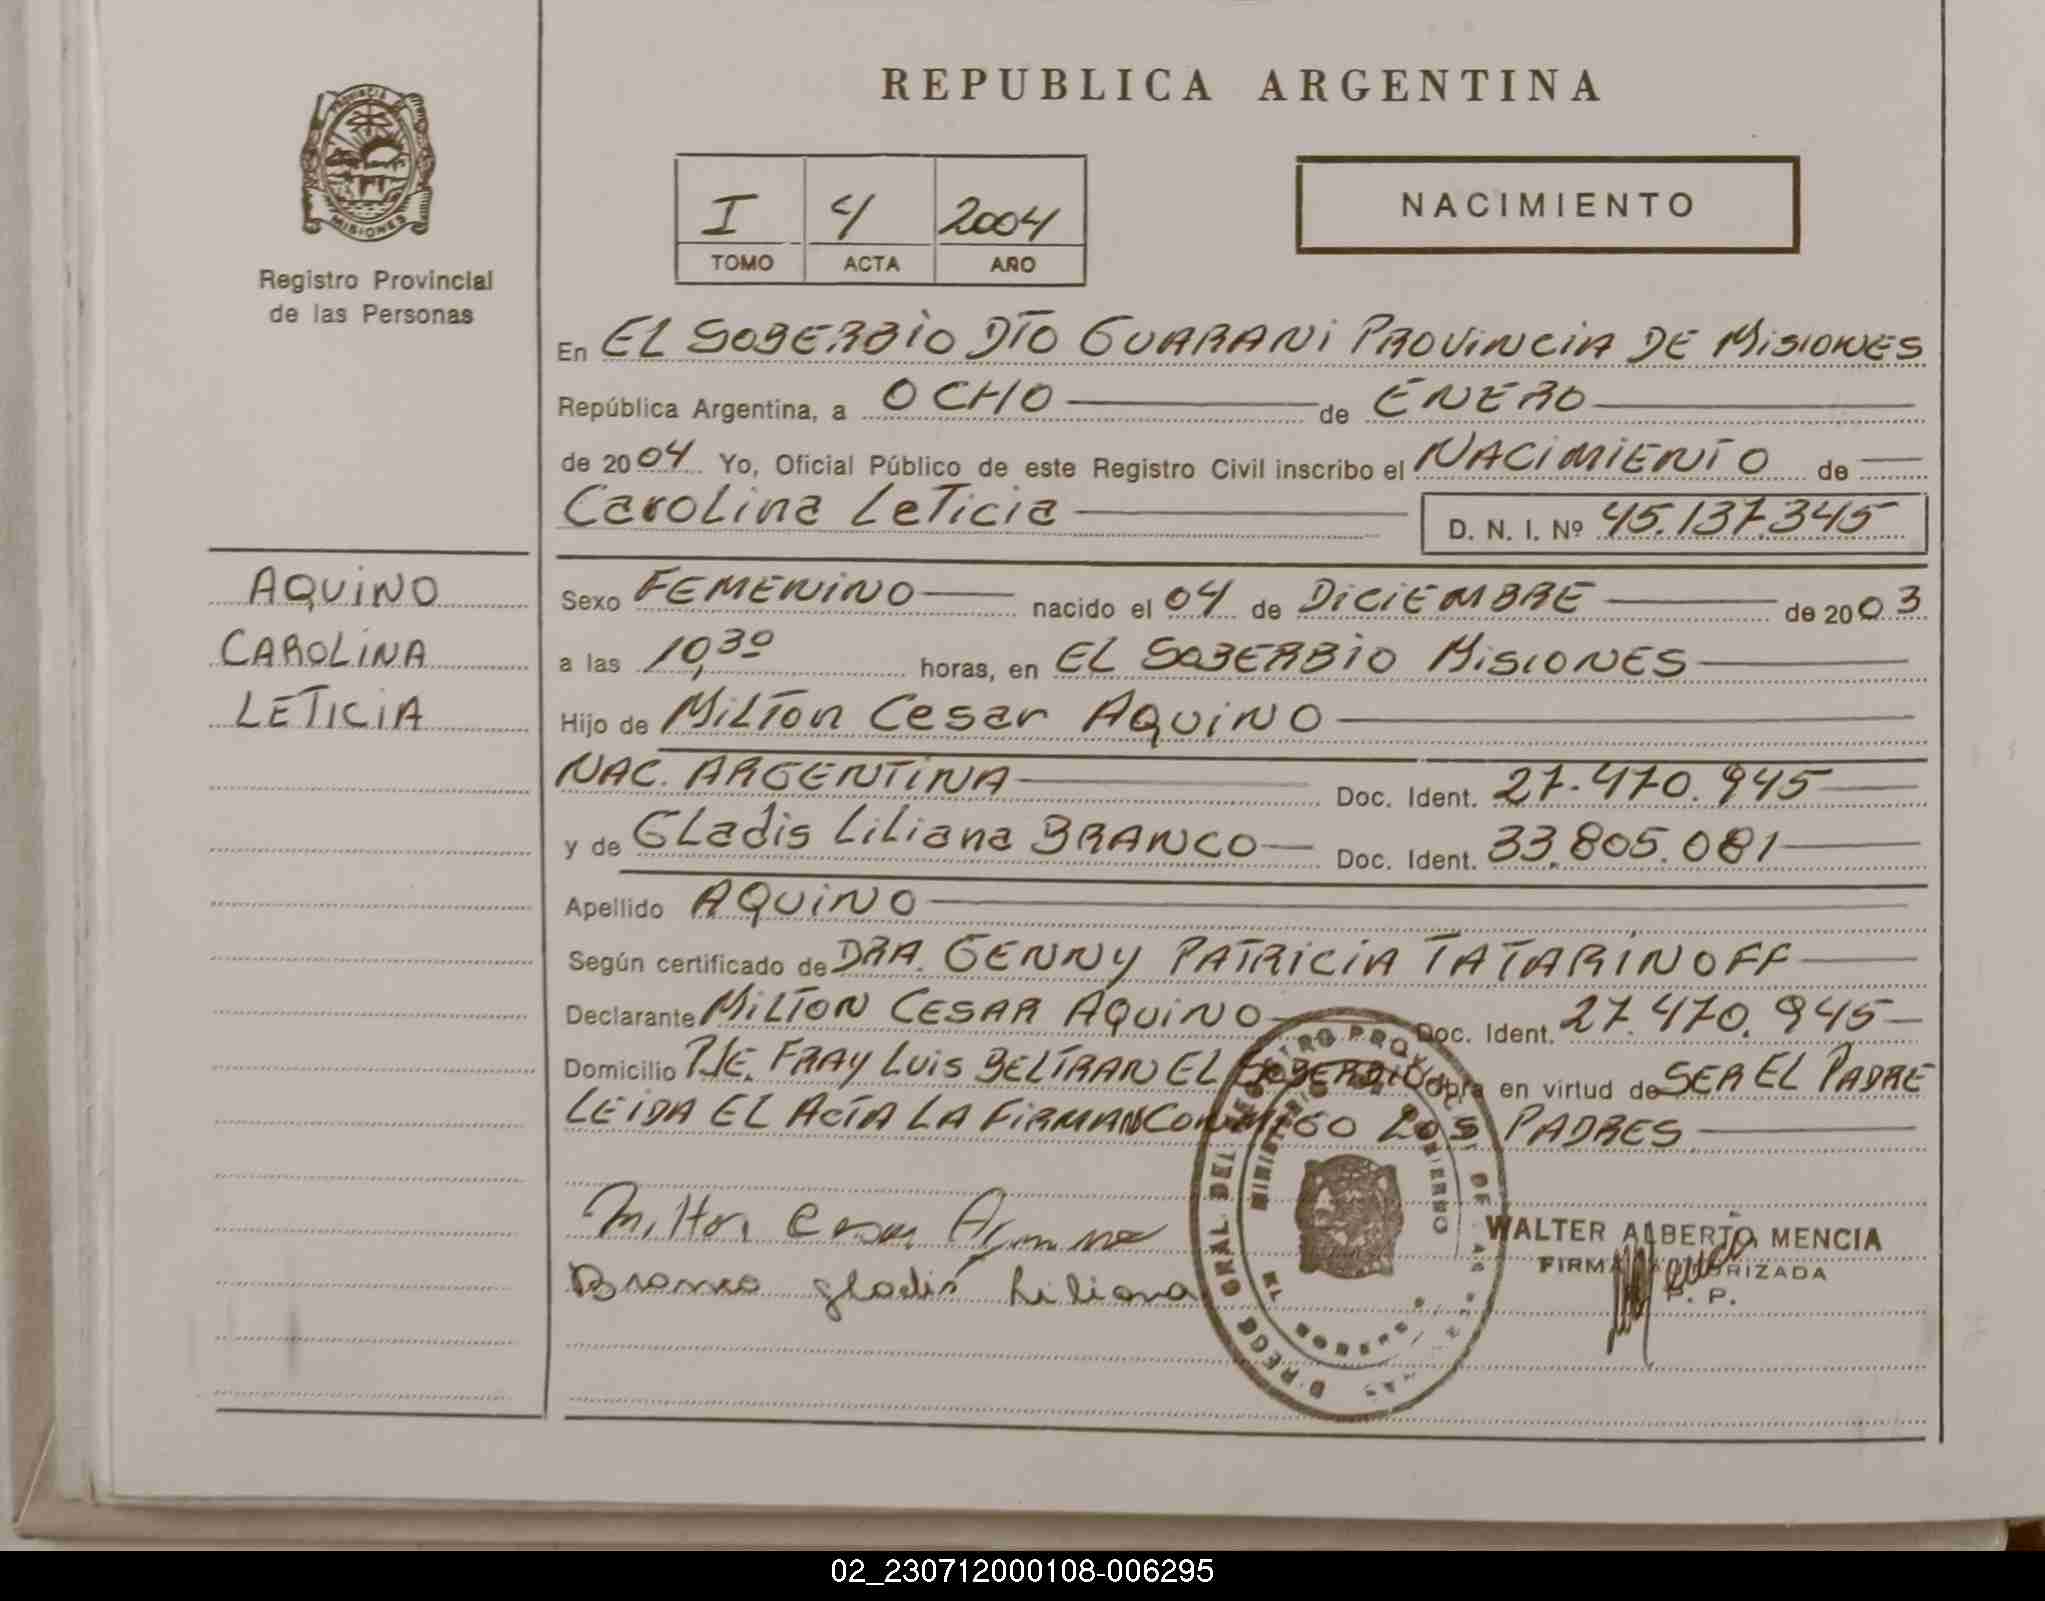 REPUBLICA ARGENTINA
PROVINCIA DE
MISIONES
Registro Provincial
de las Personas
I 4 2004
TOMO ACTA AÑO
NACIMIENTO
En EL SOBERBIO DTO GUARANI PROVINCIA DE MISIONES
República Argentina, a OCHO de ENERO
de 2004 Yo, Oficial Público de este Registro Civil inscribo el NACIMIENTO de
Carolina Leticia D. N. I. Nº 45.137.345
AQUINO
CAROLINA
LETICIA
Sexo FEMENINO nacido el 04 de DICIEMBRE de 2003
a las 10,30 horas, en EL SOBERBIO MISIONES
Hijo de Milton Cesar AQUINO
NAC. ARGENTINA Doc. Ident. 27.470.945
y de Gladis Liliana BRANCO Doc. Ident. 33.805.081
Apellido AQUINO
Según certificado de DRA. GENNY PATRICIA TATARINOFF
Declarante MILTON CESAR AQUINO Doc. Ident. 27.470.945
Domicilio PJE. FRAY LUIS BELTRAN EL SOBERBIO Obra en virtud de SER EL PADRE
LEIDA EL ACTA LA FIRMAN CONMIGO LOS PADRES
Milton Cesar Aquino
Branco gladis Liliana
WALTER ALBERTO MENCIA
FIRMA AUTORIZADA
P. P.
GRAL. DEL REGISTRO PROVINCIAL DE LAS
MINISTERIO DE GOBIERNO
02_230712000108-006295